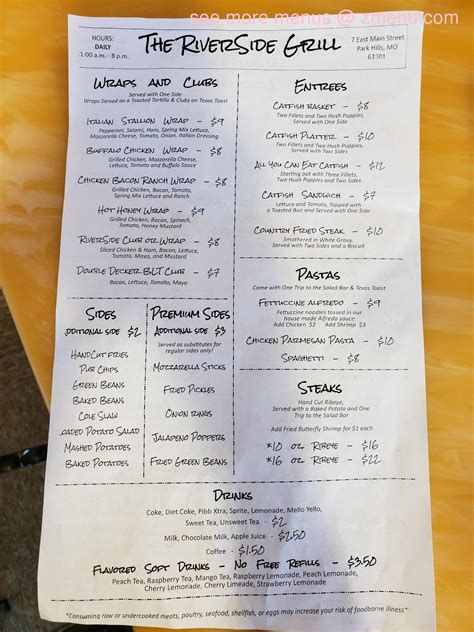 see more menus @ zmenu.com
HOURS:
DAILY
1:00 a.m. - 8 p.m.
The RiverSide Grill
7 East Main Street
Park Hills, MO
63601
Wraps and Clubs
Served with One Side
Wraps Served on a Toasted Tortilla & Clubs on Texas Toast
Italian Stallion Wrap - $9
Pepperoni, Salami, Ham, Spring Mix Lettuce,
Mozzarella Cheese, Tomato, Onion, Italian Dressing
Buffalo Chicken Wrap - $8
Grilled Chicken, Mozzarella Cheese,
Lettuce, Tomato and Buffalo Sauce
Chicken Bacon Ranch Wrap - $8
Grilled Chicken, Bacon, Tomato,
Spring Mix Lettuce and Ranch
Hot Honey Wrap - $9
Grilled Chicken, Bacon, Spinach,
Tomato, Honey Mustard
RiverSide Club or Wrap - $8
Sliced Chicken & Ham, Bacon, Lettuce,
Tomato, Mayo, and Mustard
Double Decker BLT Club - $7
Bacon, Lettuce, Tomato, Mayo
Sides
dditional side $2
HandCut fries
Pub Chips
Green Beans
Baked Beans
Cole Slaw
oaded Potato Salad
Mashed Potatoes
Baked Potatoes
Premium Sides
Additional side $3
Served as substitutes for
regular sides only!
Mozzarella Sticks
Fried Pickles
Onion rings
Jalapeno Poppers
Fried Green Beans
Entrees
Catfish basket - $8
Two Fillets and Two Hush Puppies,
Served with One Side
Catfish Platter - $10
Two Fillets, Two Hush Puppies
and Two Sides
All you Can Eat Catfish - $12
Starting out with Three Fillets,
Two Hush Puppies and Two Sides
Catfish Sandwich - $7
Lettuce and Tomato, Topped with
a Toasted Bun and Served with One Side
Country Fried Steak - $10
Smothered in White Gravy,
Served with Two Sides and a Biscuit
Pastas
Come with One Trip to the Salad Bar & Texas Toast
Fettuccine alfredo - $9
Fettuccine noodles tossed in our
house made Alfredo sauce
Add Chicken $2 Add Shrimp $3
Chicken Parmesan Pasta - $10
Spaghetti - $8
Steaks
Hand Cut Ribeye,
Served with a Baked Potato and One
Trip to the Salad Bar
Add Fried Butterfly Shrimp for $1 each
*10 oz. Ribeye - $16
*16 oz. Ribeye - $22
Drinks
Coke, Diet Coke, Pibb Xtra, Sprite, Lemonade, Mello Yello,
Sweet Tea, Unsweet Tea - $2
Milk, Chocolate Milk, Apple Juice - $2.50
Coffee - $1.50
Flavored Soft Drinks - No Free Refills - $3.50
Peach Tea, Raspberry Tea, Mango Tea, Raspberry Lemonade, Peach Lemonade,
Cherry Lemonade, Cherry Limeade, Strawberry Lemonade
*Consuming raw or undercooked meats, poultry, seafood, shellfish, or eggs may increase your risk of foodborne illness*